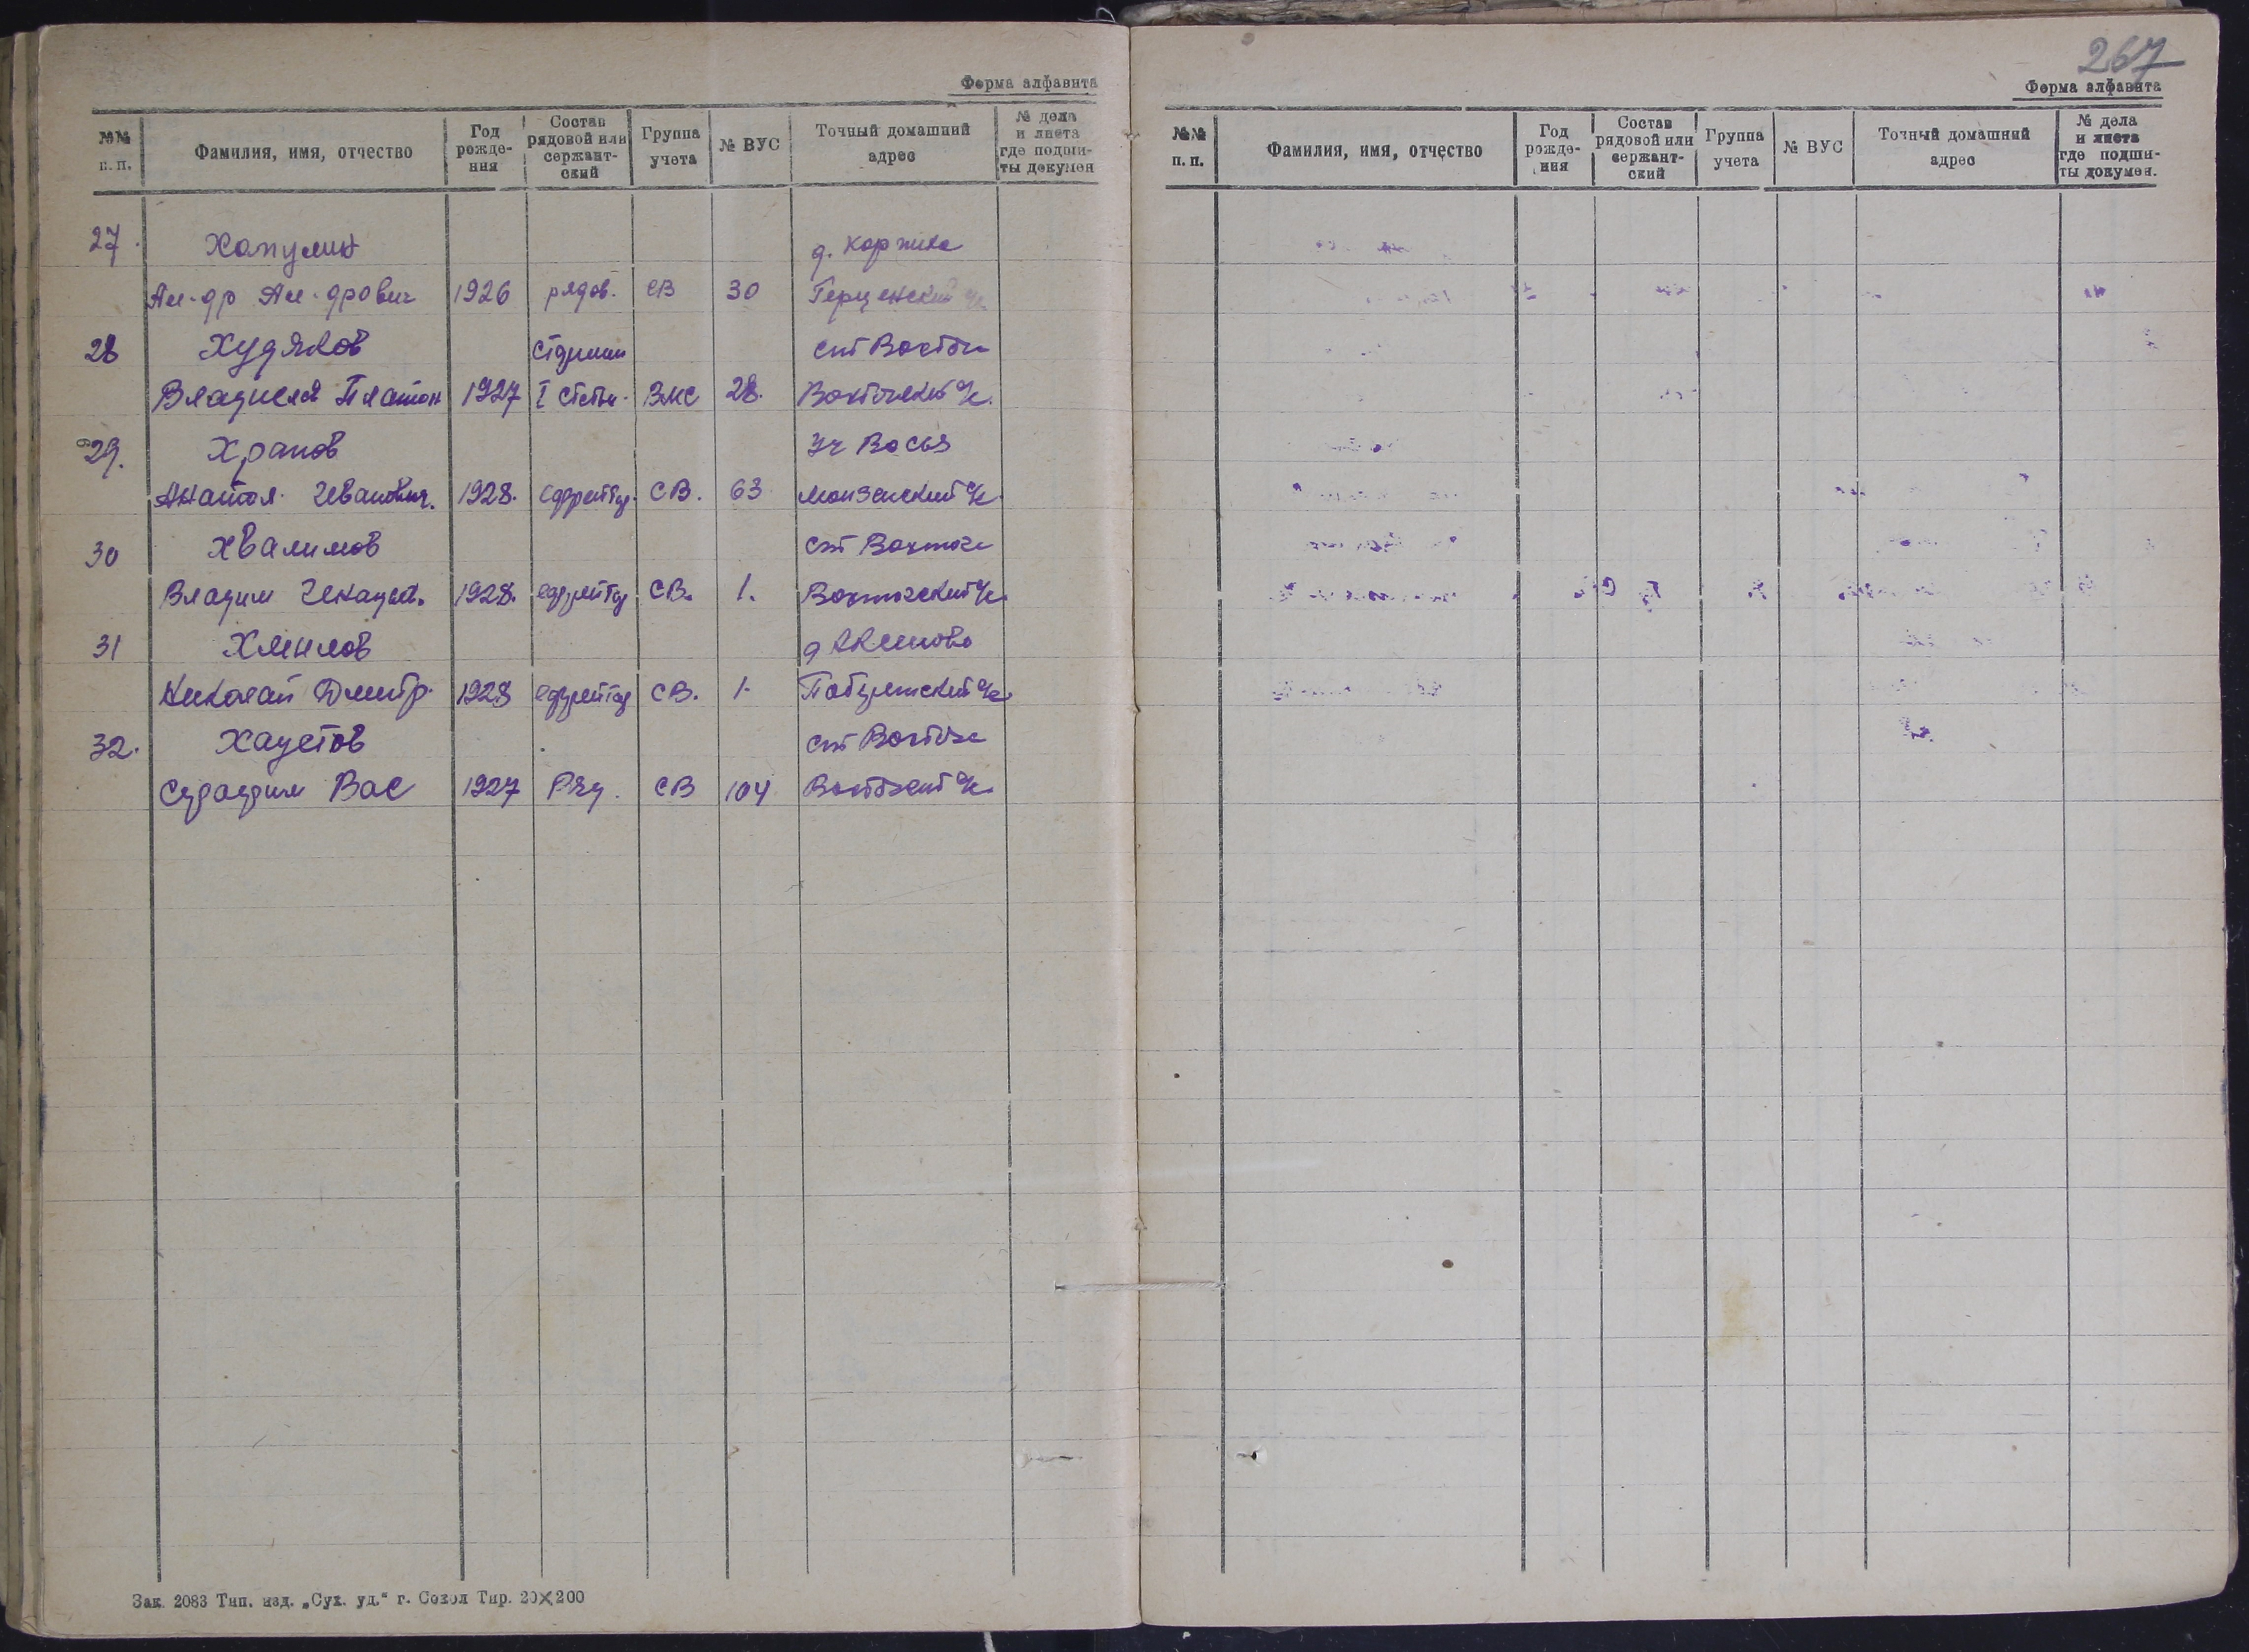 Форма алфавита
№№ п. п. Фамилия, имя, отчество Год рождения Состав рядовой или сержантский Группа учета № ВУС Точный домашний адрес № дела и листа где подшиты докумен
27. Хапулин д. Каржика
Ал-др Ал-дрович 1926 рядов. СВ 30 Герценский
28 Худяков Старшин ст Вохтога
Владисла Платон 1927 I Статьи ВМС 28. Вохтожский
29. Храпов Уч Восья
Анатол. Иванович. 1928. ефрейтор. СВ. 63 Монзенский
30 Хвалимов ст Вохтога
Владим 1928. ефрейтор СВ. 1.
31 Хмылов д Акилово
Николай Дмитр. 1928 ефрейтор СВ. 1.
32. Хаустов ст Вохтога
Вас 1927 Ряд. СВ 104
Зак. 2083 Тип. изд. „Сух. уд." г. Сокол Тир. 20×200
267
Форма алфавита
№№ п. п. Фамилия, имя, отчество Год рождения Состав рядовой или сержантский Группа учета № ВУС Точный домашний адрес № дела и листа где подшиты докумен.